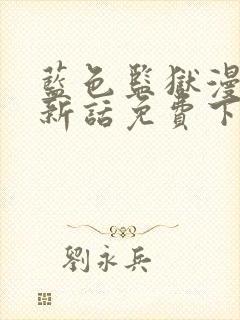 藍色監獄漫
新話免費下
劉永兵